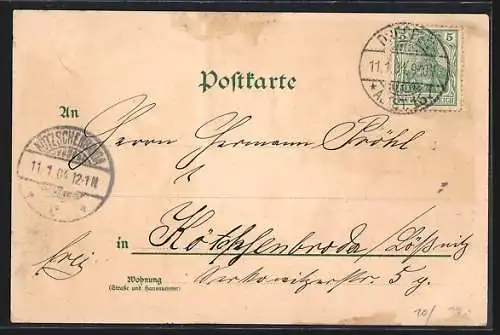 5
DRESDEN
11.1.04
Postkarte
An
Herrn Hermann Pröhl
KÖTZSCHENBRODA
11.1.04. 12-1N
c
in Kötzschenbroda/Lößnitz
frei
Wohnung
(Straße und Hausnummer)
Serkowitzerstr. 5 g.
10/